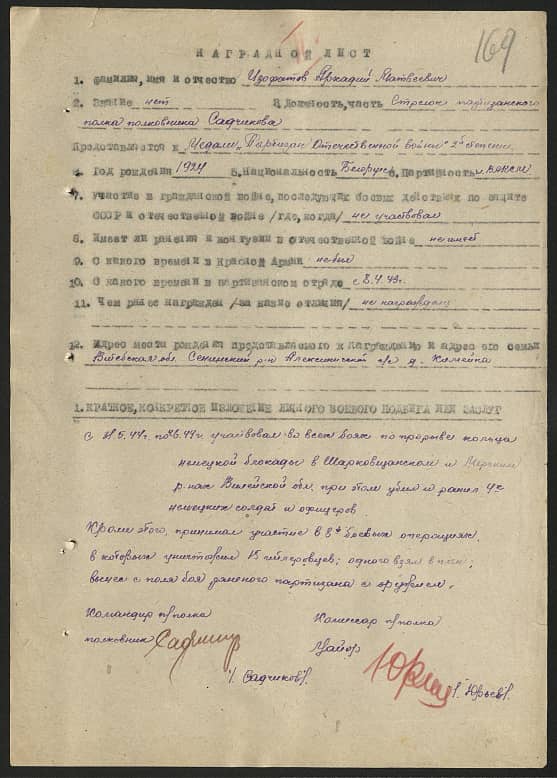 169
НАГРАДНОЙ ЛИСТ
1. Фамилия, имя и отчество Изофатов Аркадий Матвеевич
2. Звание нет 3. Должность, часть Стрелок партизанского
полка полковника Садчикова
Представляется к Медали "Партизан Отечественной войны" 2й степени
4. Год рождения 1924 5. Национальность Белорус 6. Партийность чл. ВЛКСМ
7. Участие в гражданской войне, последующих боевых действиях по защите
СССР и отечественной войне /где, когда/ не участвовал
8. Имеет ли ранения и контузии в отечественной войне не имеет
9. С какого времени в Красной Армии не был
10. С какого времени в партизанском отряде с 8.4.43г.
11. Чем ранее награжден /за какие отличия/ не награждался
12. Адрес места рождения представляемого к награждению и адрес его семьи
Витебская обл. Сенненский р-н с/с д. Камейка
1. КРАТКОЕ, КОНКРЕТНОЕ ИЗЛОЖЕНИЕ ЛИЧНОГО БОЕВОГО ПОДВИГА ИЛИ ЗАСЛУГ
участвовал во всех боях по прорыве кольца
немецкой блокады в Шарковщанском и Мёрском
р-нах Вилейской обл. при этом убил и ранил
немецких солдат и офицеров.
Кроме этого, принимал участие в 8й боевых операциях,
в которых уничтожил 15 гитлеровцев; одного взял в плен;
вынес с поля боя раненого партизана с оружием.
Командир п/полка Комиссар п/полка
полковник Садчиков Майор Юрьев
/Садчиков/. /Юрьев/.